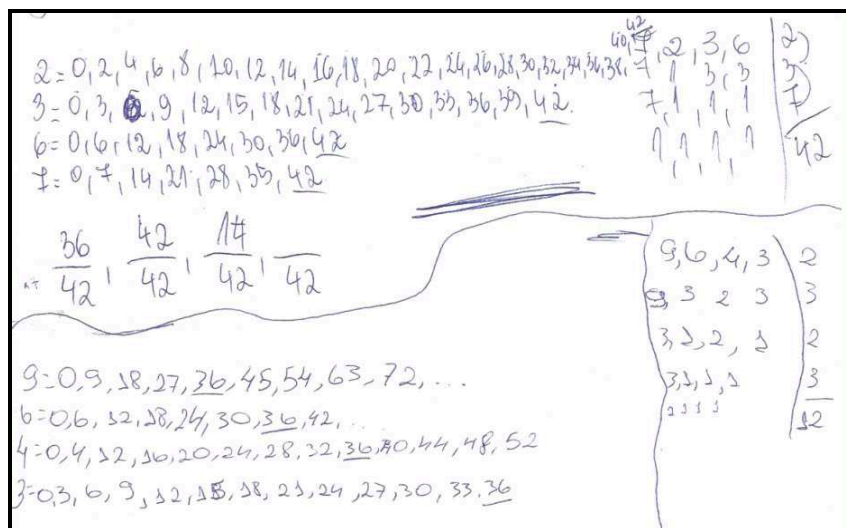 2=0,2,4,6,8,10,12,14,16,18,20,22,24,26,28,30,32,34,36,38,40,42
3=0,3,6,9,12,15,18,21,24,27,30,33,36,39,42.
6=0,6,12,18,24,30,36,42
7=0,7,14,21,28,35,42
7,2,3,6 | 2)
7 1 3,3 | 3)
7,1,1,1 | 7)
1,1,1,1 | 42
36/42, 42/42, 14/42, /42
9,6,4,3 | 2
9,3 2 3 | 3
3,1,2,1 | 2
3,1,1,1 | 3
1 1 1 1 | 12
9=0,9,18,27,36,45,54,63,72,...
6=0,6,12,18,24,30,36,42,...
4=0,4,12,16,20,24,28,32,36,40,44,48,52
3=0,3,6,9,12,15,18,21,24,27,30,33.36